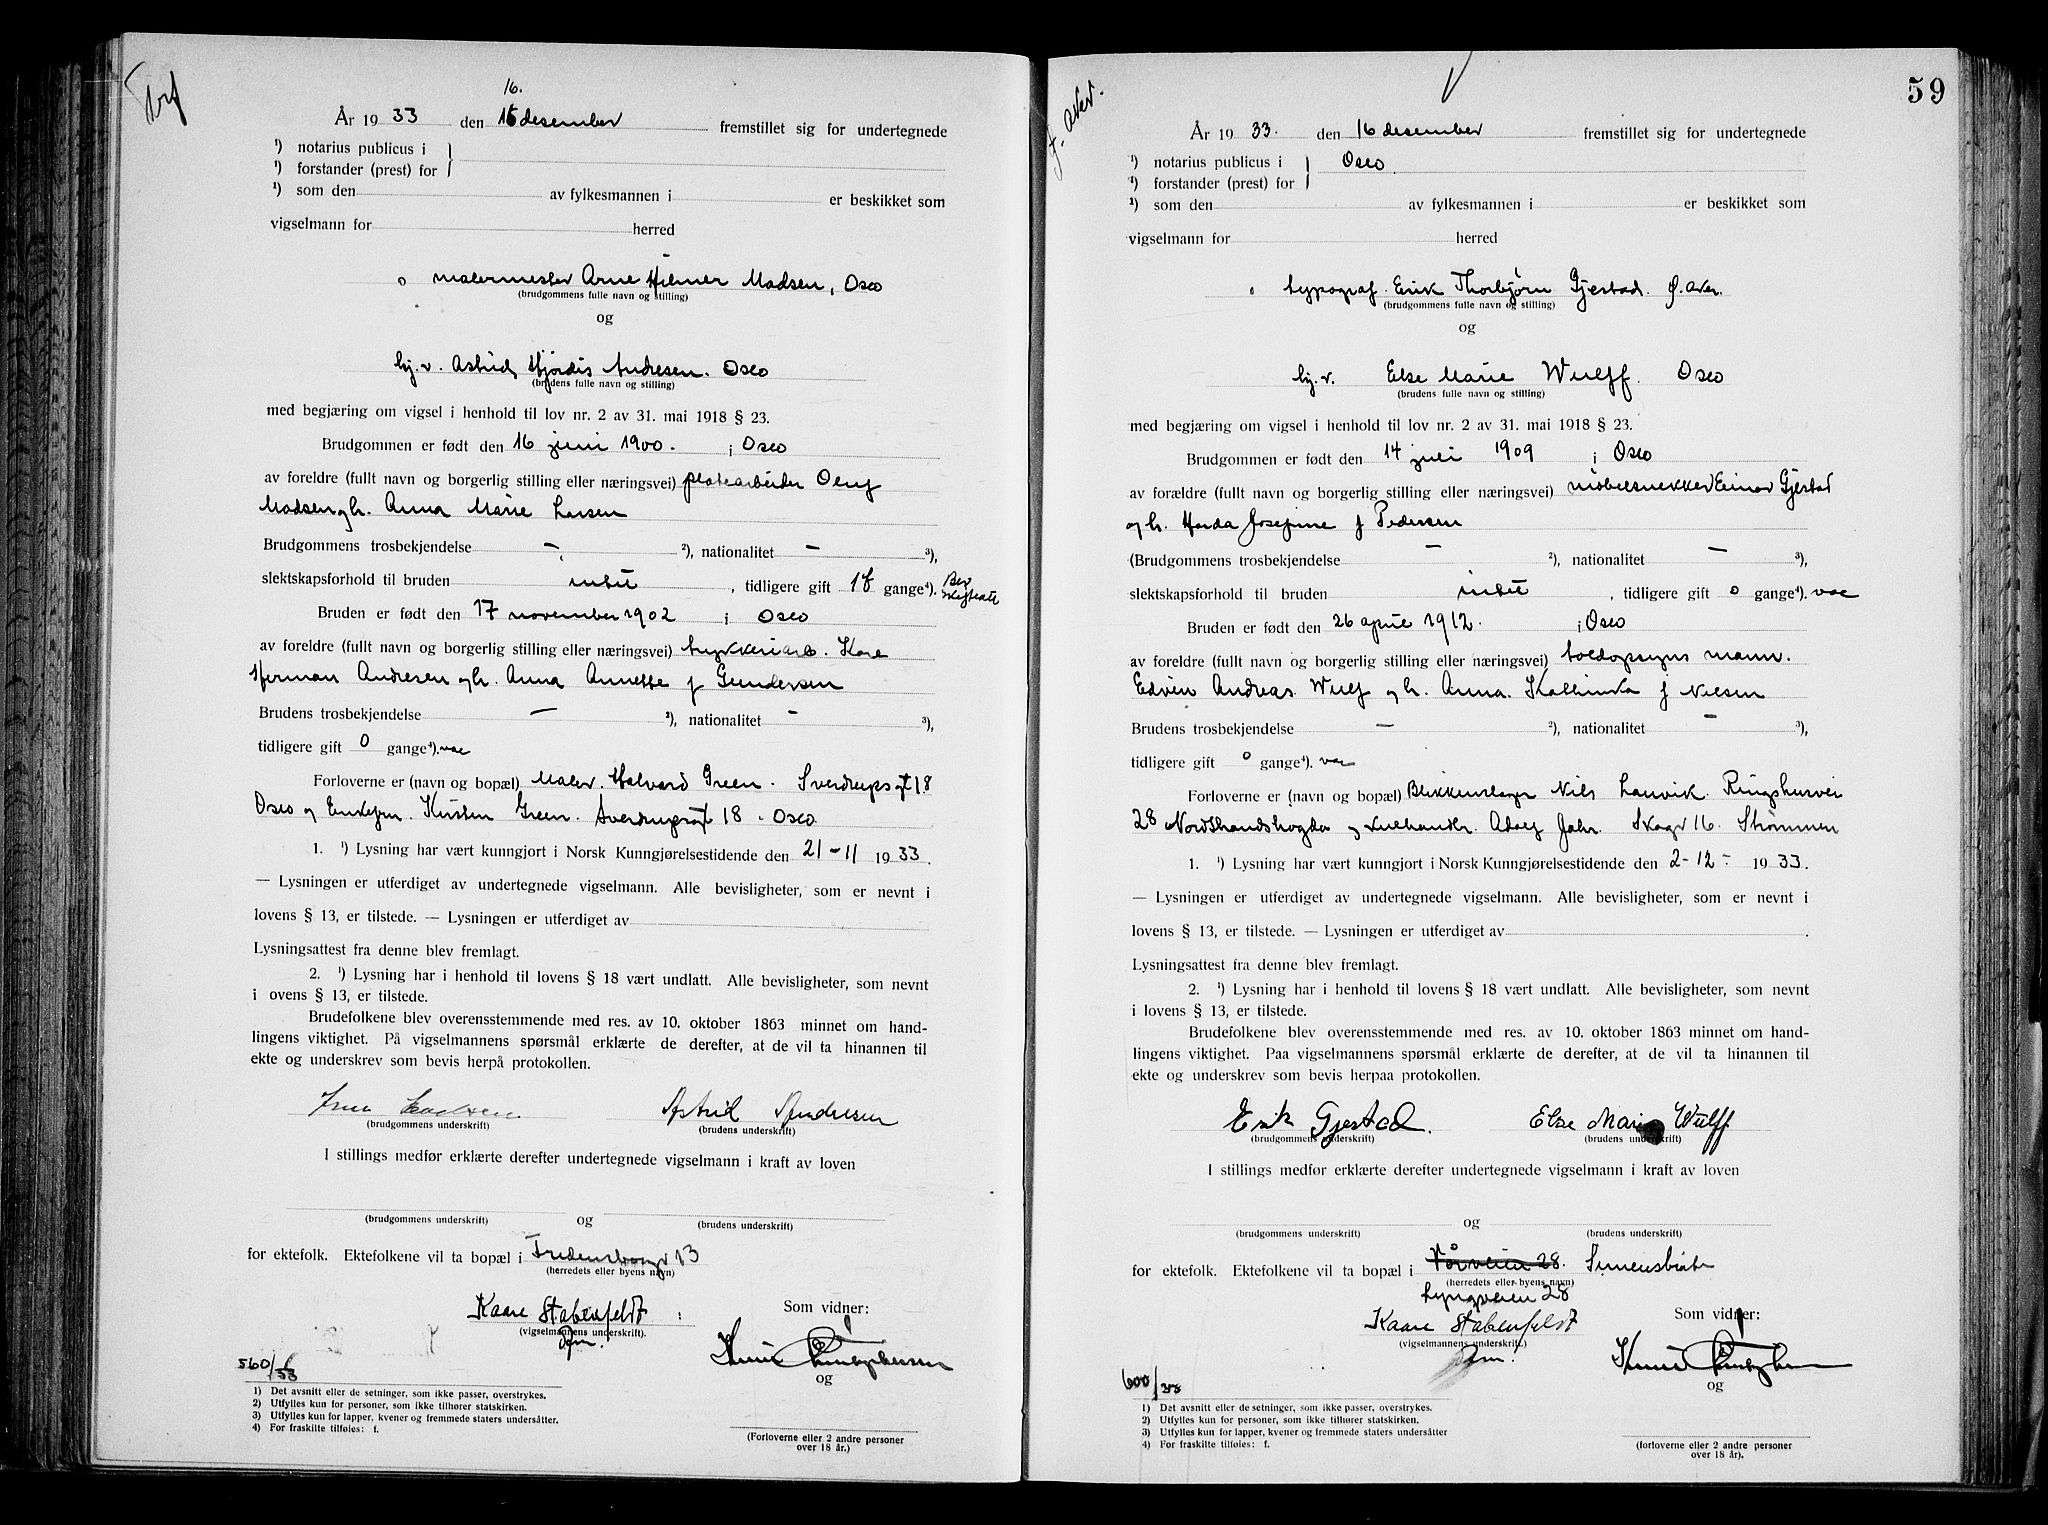 16.
År 1933 den 15 desember fremstillet sig for undertegnede
¹) notarius publicus i
¹) forstander (prest) for
¹) som den av fylkesmannen i er beskikket som
vigselmann for herred
o malermester Arne Hilmer Madsen, Oslo
(brudgommens fulle navn og stilling)
og
hj.v. Astrid Hjørdis Andresen. Oslo
(brudens fulle navn og stilling)
med begjæring om vigsel i henhold til lov nr. 2 av 31. mai 1918 § 23.
Brudgommen er født den 16 juni 1900. i Oslo
av foreldre (fullt navn og borgerlig stilling eller næringsvei) platearbeider Oluf
Madsen og h. Anna Marie Larsen
Brudgommens trosbekjendelse - ²), nationalitet - ³),
slektskapsforhold til bruden intet, tidligere gift 1 f gange⁴). Bev
Bruden er født den 17 november 1902 i Oslo
av foreldre (fullt navn og borgerlig stilling eller næringsvei) Karl
Herman Andresen og h. Anna Annette f Gundersen
Brudens trosbekjendelse - ²), nationalitet - ³),
tidligere gift 0 gange⁴). vac
Forloverne er (navn og bopæl) Maler. Halvard Green. Sverdrupsgt 18
Oslo og Enkefrn. Kirsten Green. Sverdrupsgt 18. Oslo
1. ¹) Lysning har vært kunngjort i Norsk Kunngjørelsestidende den 21-11 1933.
— Lysningen er utferdiget av undertegnede vigselmann. Alle bevisligheter, som er nevnt i
lovens § 13, er tilstede. — Lysningen er utferdiget av
Lysningsattest fra denne blev fremlagt.
2. ¹) Lysning har i henhold til lovens § 18 vært undlatt. Alle bevisligheter, som nevnt
i ovens § 13, er tilstede.
Brudefolkene blev overensstemmende med res. av 10. oktober 1863 minnet om hand-
lingens viktighet. På vigselmannens spørsmål erklærte de derefter, at de vil ta hinannen til
ekte og underskrev som bevis herpå protokollen.
Arne Madsen Astrid Andresen
(brudgommens underskrift) (brudens underskrift)
I stillings medfør erklærte derefter undertegnede vigselmann i kraft av loven
og
(brudgommens underskrift) (brudens underskrift)
for ektefolk. Ektefolkene vil ta bopæl i Fredensborgv 13
(herredets eller byens navn)
Kaare Stabenfeldt Som vidner:
(vigselmannens underskrift).
og
560/33
1) Det avsnitt eller de setninger, som ikke passer, overstrykes.
2) Utfylles kun for personer, som ikke tilhører statskirken.
3) Utfylles kun for lapper, kvener og fremmede staters undersåtter.
4) For fraskilte tilføies: f.
(Forloverne eller 2 andre personer
over 18 år.)
59
År 1933. den 16 desember fremstillet sig for undertegnede
¹) notarius publicus i Oslo
¹) forstander (prest) for
¹) som den av fylkesmannen i er beskikket som
vigselmann for herred
typograf. Erik Thorbjørn Gjestad. Ø. Aker.
(brudgommens fulle navn og stilling)
og
hj.v. Else Marie Wulff. Oslo
(brudens fulle navn og stilling)
med begjæring om vigsel i henhold til lov nr. 2 av 31. mai 1918 § 23.
Brudgommen er født den 14 juli 1909 i Oslo
av forældre (fullt navn og borgerlig stilling eller næringsvei) møbelsnekker Einar Gjestad
og h. Harda Josefine f Pedersen
(Brudgommens trosbekjendelse - ²), nationalitet - ³),
slektskapsforhold til bruden intet, tidligere gift 0 gange⁴). vac
Bruden er født den 26 april 1912. i Oslo
av foreldre (fullt navn og borgerlig stilling eller næringsvei) toldopsynsmann.
Edvin Andreas Wulf og h. Anna. Kathinka f Nilsen
Brudens trosbekjendelse - ²), nationalitet - ³),
tidligere gift 0 gange⁴). vac
Forloverne er (navn og bopæl) Blikkenslager Nils Larvik. Ringshusvei
28 Nordstrandshøgda og kulhandlr. Adolf Jahr. Skogv 16. Strømmen
1. ¹) Lysning har vært kunngjort i Norsk Kunngjørelsestidende den 2-12- 1933.
— Lysningen er utferdiget av undertegnede vigselmann. Alle bevisligheter, som er nevnt i
lovens § 13, er tilstede. — Lysningen er utferdiget av
Lysningsattest fra denne blev fremlagt.
2. ¹) Lysning har i henhold til lovens § 18 vært undlatt. Alle bevisligheter, som nevnt
i lovens § 13, er tilstede.
Brudefolkene blev overensstemmende med res. av 10. oktober 1863 minnet om hand-
lingens viktighet. Paa vigselmannens spørsmål erklærte de derefter, at de vil ta hinannen til
ekte og underskrev som bevis herpaa protokollen.
Erik Gjestad. Else Marie Wulff.
(brudgommens underskrift) (brudens underskrift)
I stillings medfør erklærte derefter undertegnede vigselmann i kraft av loven
og
(brudgommens underskrift) (brudens underskrift)
for ektefolk. Ektefolkene vil ta bopæl i Vårveien 28. Simensbråt
(herredets eller byens navn)
Lyngveien 28
Kaare Stabenfeldt Som vidner:
(vigselmannens underskrift.)
og
600/33
1) Det avsnitt eller de setninger, som ikke passer, overstrykes.
2) Utfylles kun for personer, som ikke tilhører statskirken.
3) Utfylles kun for lapper, kvener og fremmede staters undersåtter
4) For fraskilte tilføies: f.
(forloverne eller 2 andre personer
over 18 år).